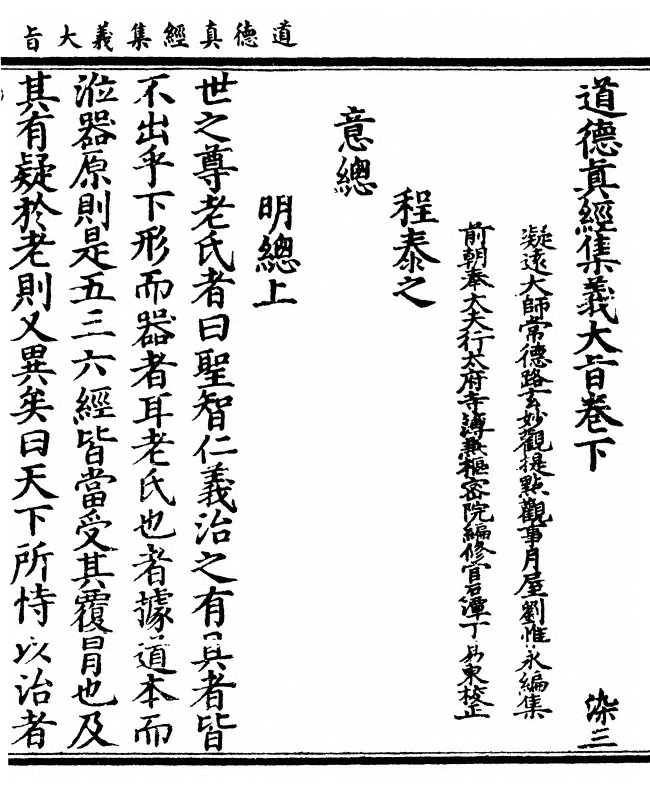 道德真經集義大旨
道德真經集義大旨卷下
染三
凝遠大師常德路玄妙觀提點觀事月屋劉惟永編集
前朝奉大夫行太府寺簿兼樞密院編修官石潭丁易東校正
程泰之
意總
明總上
世之尊老氏者曰聖智仁義治之有具者皆
不出乎下形而器者耳老氏也者據道本而
涖器原則是五三六經皆當受其覆冒也及
其有疑於老則又異矣曰天下所恃以治者